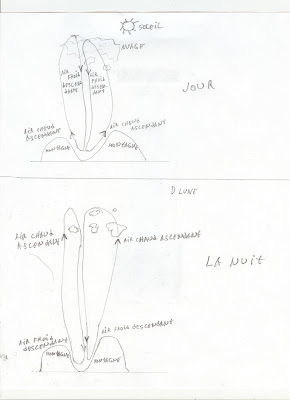 SOLEIL
NUAGE
AIR
FROID
DESCEN
DANT
AIR
FROID
DESCEN
DANT
JOUR
AIR CHAUD
ASCENDANT
AIR CHAUD
ASCENDANT
MONTAGNE
MONTAGNE
LUNE
AIR CHAUD
ASCENDANT
AIR CHAUD ASCENDANT
LA NUIT
AIR FROID
DESCENDANT
AIR FROID DESCENDANT
MONTAGNE
MONTAGNE